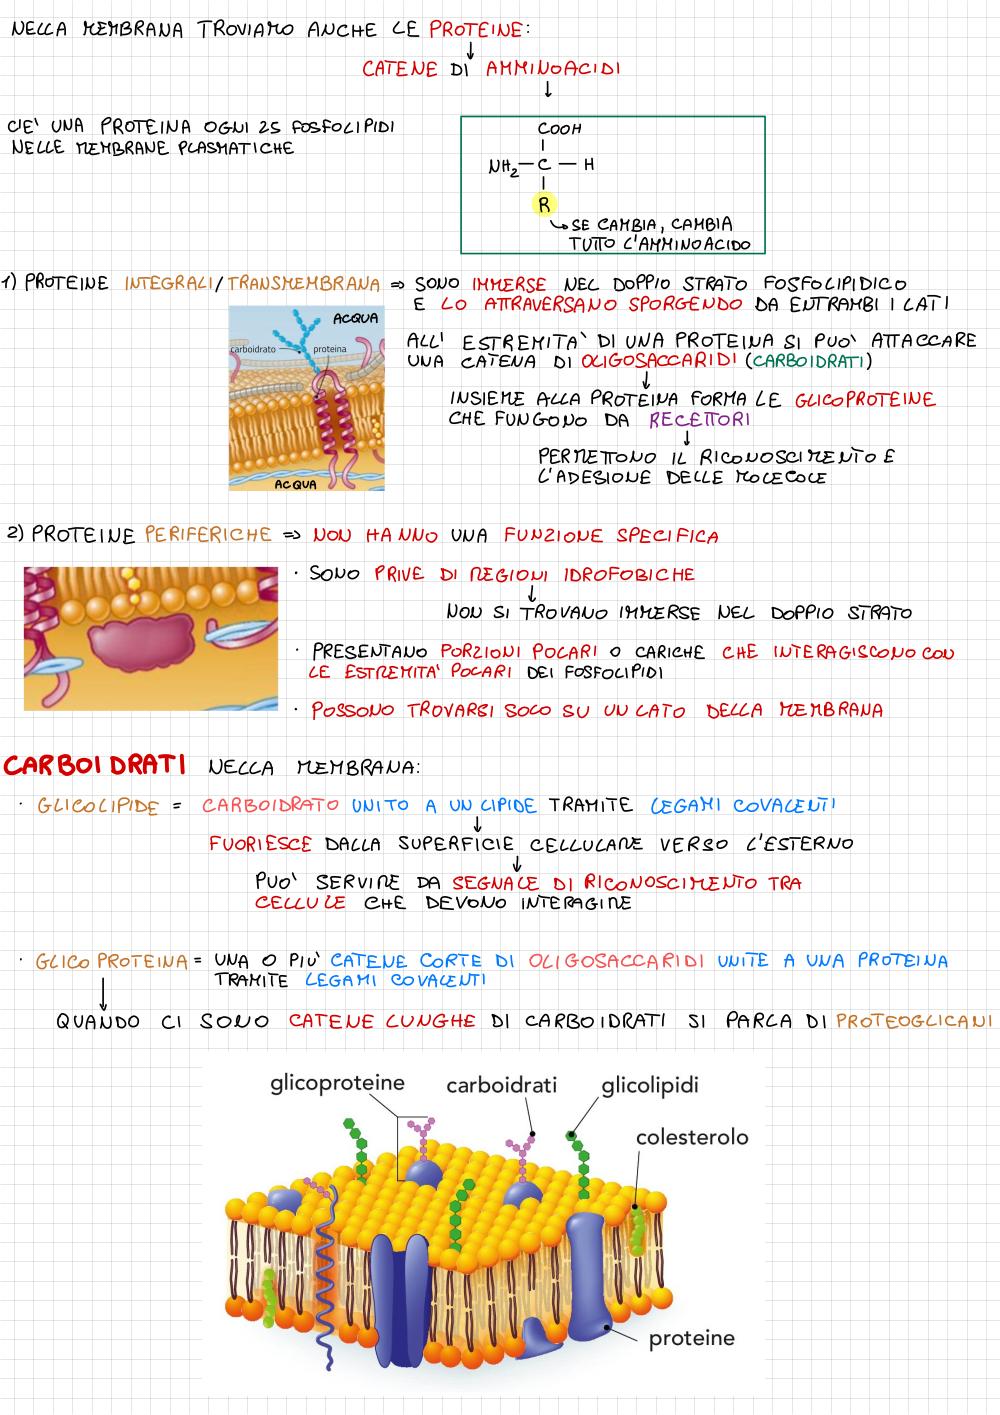 NELLA MEMBRANA TROVIAMO ANCHE LE PROTEINE:
↓
CATENE DI AMMINOACIDI
↓
C'E' UNA PROTEINA OGNI 25 FOSFOLIPIDI
NELLE MEMBRANE PLASMATICHE
COOH
NH2 — C — H
R
↳ SE CAMBIA, CAMBIA
TUTTO L'AMMINOACIDO
1) PROTEINE INTEGRALI/TRANSMEMBRANA => SONO IMMERSE NEL DOPPIO STRATO FOSFOLIPIDICO
E LO ATTRAVERSANO SPORGENDO DA ENTRAMBI I LATI
ACQUA
carboidrato
proteina
ACQUA
ALL' ESTREMITA' DI UNA PROTEINA SI PUO' ATTACCARE
UNA CATENA DI OLIGOSACCARIDI (CARBOIDRATI)
↓
INSIEME ALLA PROTEINA FORMA LE GLICOPROTEINE
CHE FUNGONO DA RECETTORI
↓
PERMETTONO IL RICONOSCIMENTO E
L'ADESIONE DELLE MOLECOLE
2) PROTEINE PERIFERICHE => NON HANNO UNA FUNZIONE SPECIFICA
· SONO PRIVE DI REGIONI IDROFOBICHE
↓
NON SI TROVANO IMMERSE NEL DOPPIO STRATO
· PRESENTANO PORZIONI POLARI O CARICHE CHE INTERAGISCONO CON
LE ESTREMITA' POLARI DEI FOSFOLIPIDI
· POSSONO TROVARSI SOLO SU UN LATO DELLA MEMBRANA
CARBOIDRATI NELLA MEMBRANA:
· GLICOLIPIDE = CARBOIDRATO UNITO A UN LIPIDE TRAMITE LEGAMI COVALENTI
↓
FUORIESCE DALLA SUPERFICIE CELLULARE VERSO L'ESTERNO
↓
PUO' SERVIRE DA SEGNALE DI RICONOSCIMENTO TRA
CELLULE CHE DEVONO INTERAGIRE
· GLICOPROTEINA = UNA O PIU' CATENE CORTE DI OLIGOSACCARIDI UNITE A UNA PROTEINA
TRAMITE LEGAMI COVALENTI
↓
QUANDO CI SONO CATENE LUNGHE DI CARBOIDRATI SI PARLA DI PROTEOGLICANI
glicoproteine
carboidrati
glicolipidi
colesterolo
proteine